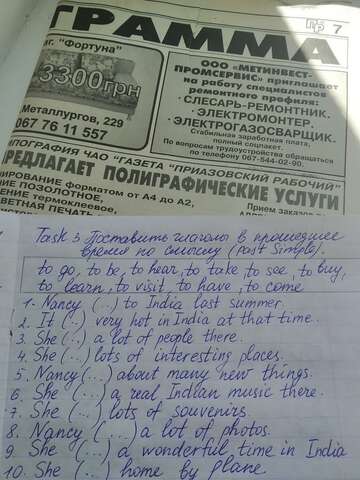 ГРАММА
ПГ 7
маг. "Фортуна"
3300грн
Металлургов, 229
067 76 11 557
ООО "МЕТИНВЕСТ-
ПРОМСЕРВИС" приглашает
на работу специалистов
ремонтного профиля:
· СЛЕСАРЬ-РЕМОНТНИК.
· ЭЛЕКТРОМОНТЕР.
· ЭЛЕКТРОГАЗОСВАРЩИК.
Стабильная заработная плата,
полный соцпакет.
По вопросам трудоустройства обращаться
по телефону 067-544-02-90.
ТИПОГРАФИЯ ЧАО "ГАЗЕТА "ПРИАЗОВСКИЙ РАБОЧИЙ"
РЕДЛАГАЕТ ПОЛИГРАФИЧЕСКИЕ УСЛУГИ
ИРОВАНИЕ форматом от А4 до А2,
НИЕ ПОЗОЛОТНОЕ,
ЕНИЕ термоклеевое,
ВЕТНАЯ ПЕЧАТЬ
Прием заказов
Task 3 Поставить глаголы в прошедшее
время по смыслу (Past Simple).
to go, to be, to hear, to take to see, to buy,
to learn, to visit, to have, to come
1. Nancy (..) to India last summer.
2. It (..) very hot in India at that time.
3. She (...) a lot of people there.
4. She (...) lots of interesting places.
5. Nancy (...) about many new things.
6. She (...) a real Indian music there.
7. She (...) lots of souvenirs.
8. Nancy (...) a lot of photos.
9. She (...) a wonderful time in India
10. She (...) home by plane.